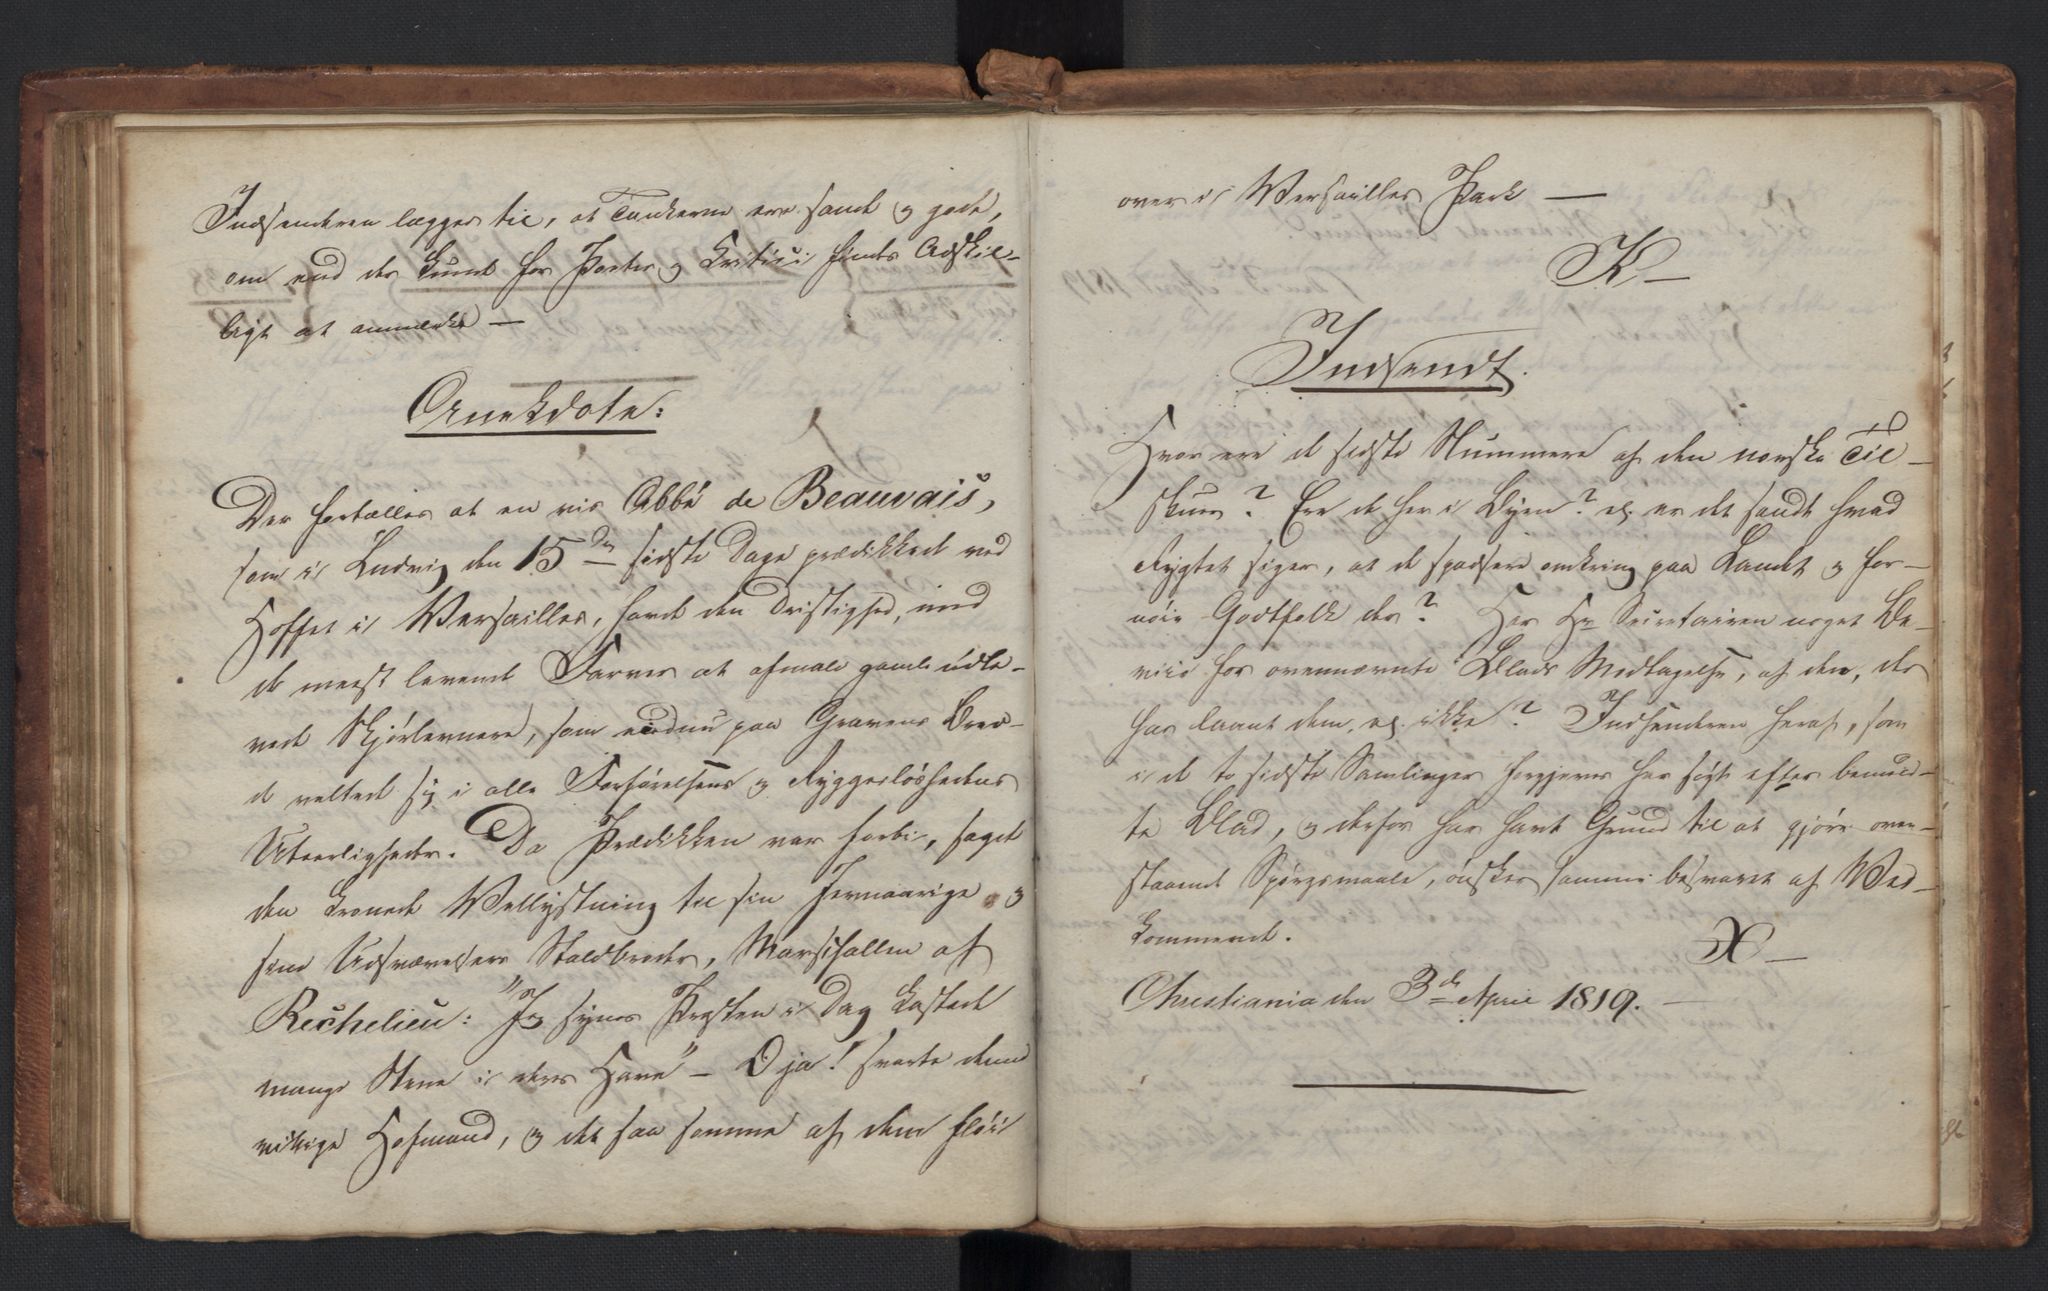 Indsenderen lægger til, at Tankerne ere sande og gode,
om end der kunde for Poeter og Kritici findes Adskil-
ligt at anmærke —
Anekdote:
Der fortælles at en vis Abbé de Beauvais,
som i Ludvig den 15de sidste Dage prædikkede ved
Hoffet i Versailles, havde den Dristighed, med
de meest levende Farver at afmale gamle udle-
vede Skjørlevnere, som endnu paa Gravens Bred-
de veltede sig i alle Forførelsens og Ryggesløshedens
Uteerligheder. Da Prædikken var forbi, sagde
den kronede Vellystning til sin Jevnaarige og
sine Udsvævelsers Staldbroder, Marschallen af
Rechelieu: "Jeg synes Præsten i Dag kastede
mange Stene i deres Have" — O ja! svarte denne
vittige Hofmand, og det saa somme af dem fløi
over i Versailles Park —
K —
Indsendt.
Hvor ere de sidste Nummere af den norske Til-
skuer? Ere de her i Byen? el. er det sandt hvad
Rygtet siger, at de spadsere omkring paa Landet og for-
nøie Godtfolk der? Har Hr Secretairen noget Be-
viis for ovennævnte Blads Modtagelse, af den, der
har laant dem, el. ikke? Indsenderen heraf, som
i de to sidste Samlinger forgjeves har søgt efter bemeld-
te Blad, og derfor har havt Grund til at gjøre oven-
staaende Spørgsmaale, ønsker samme besvaret af Ved-
kommende.
X —
Christiania den 3de April 1819. —